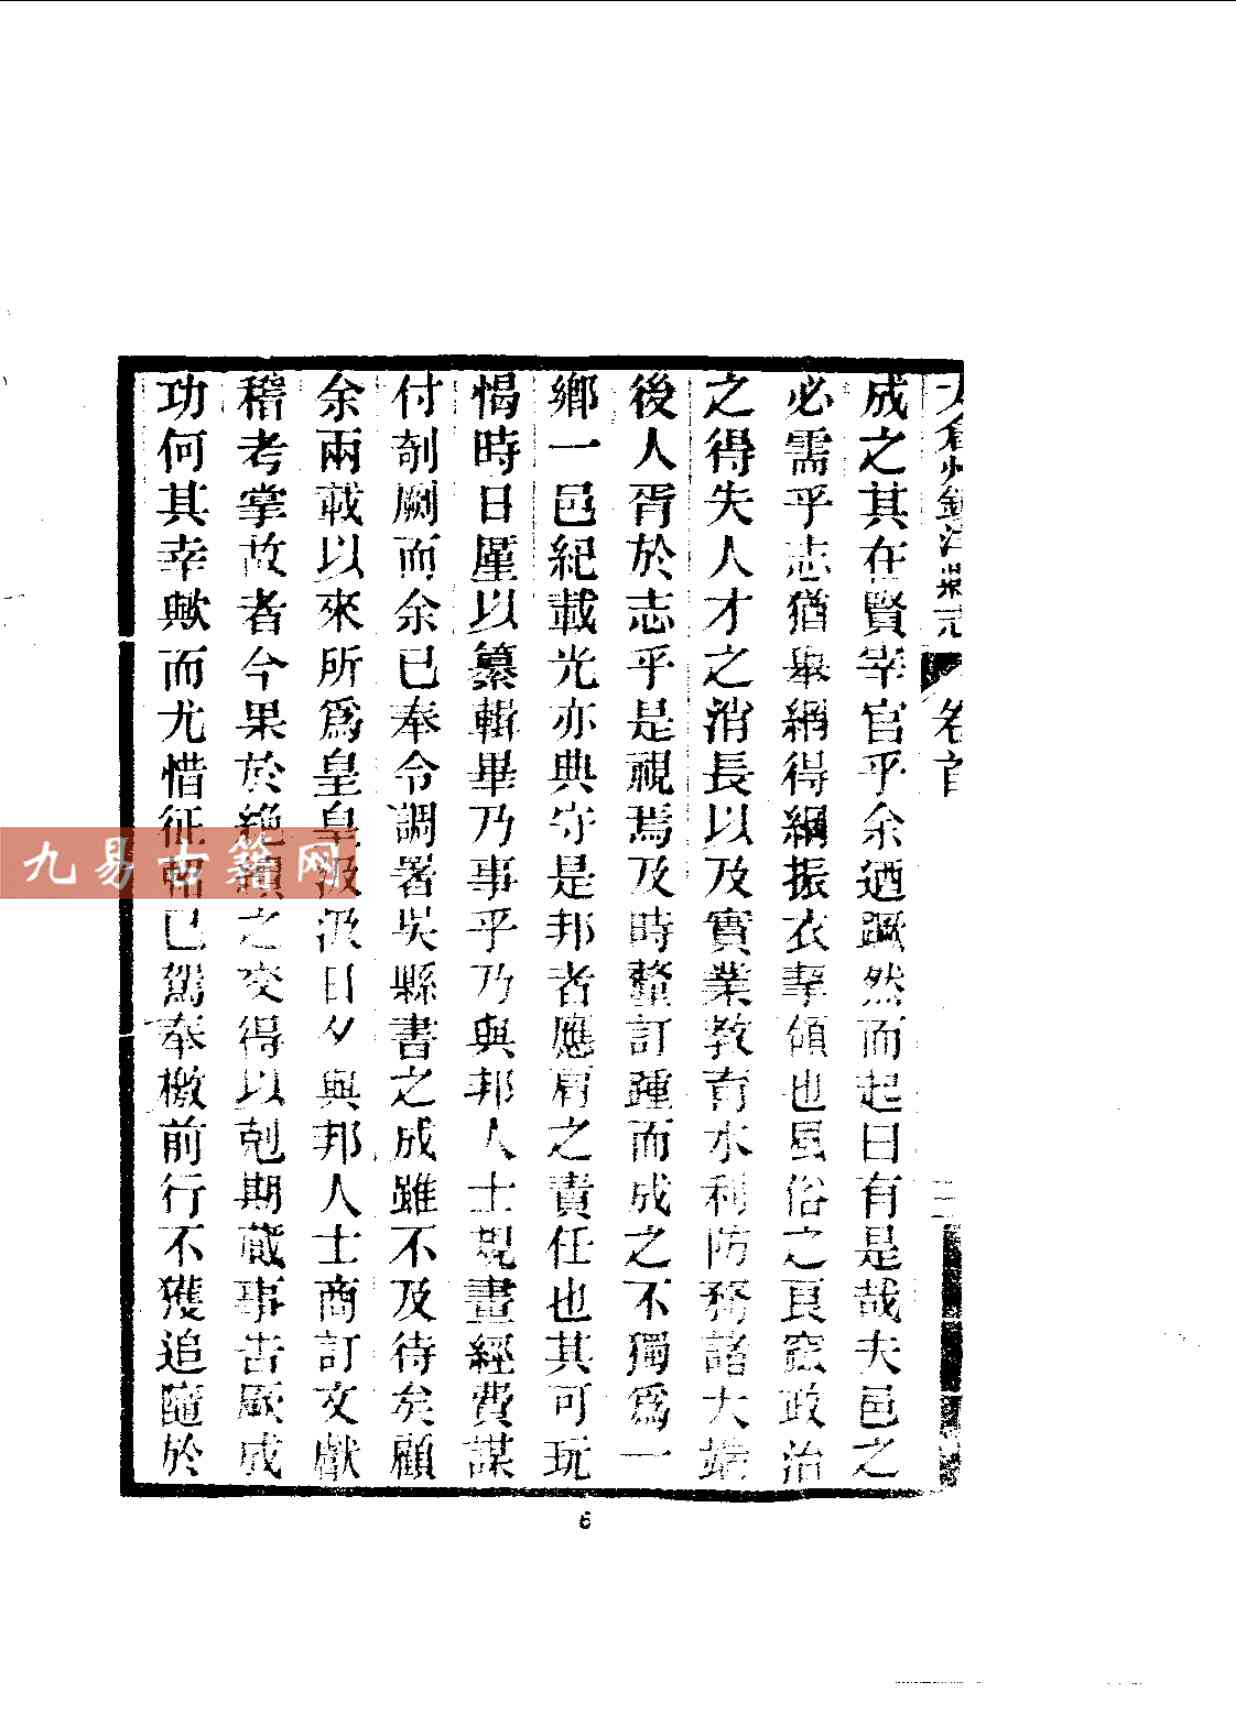 太倉州鎮洋縣志 卷首 二
成之其在賢宰官乎余迺蹶然而起曰有是哉夫邑之
必需乎志猶舉網得綱振衣挈領也風俗之良窳政治
之得失人才之消長以及實業教育水利防務諸大端
後人胥於志乎是視焉及時釐訂踵而成之不獨爲一
鄉一邑紀載光亦典守是邦者應肩之責任也其可玩
愒時日廑以纂輯畢乃事乎乃與邦人士規畫經費謀
付剞劂而余已奉令調署吳縣書之成雖不及待矣顧
余兩載以來所爲皇皇汲汲日夕與邦人士商訂文獻
稽考掌故者今果於絶續之交得以剋期蕆事告厥成
功何其幸歟而尤惜征軺已駕奉檄前行不獲追隨於
6
九易古籍网